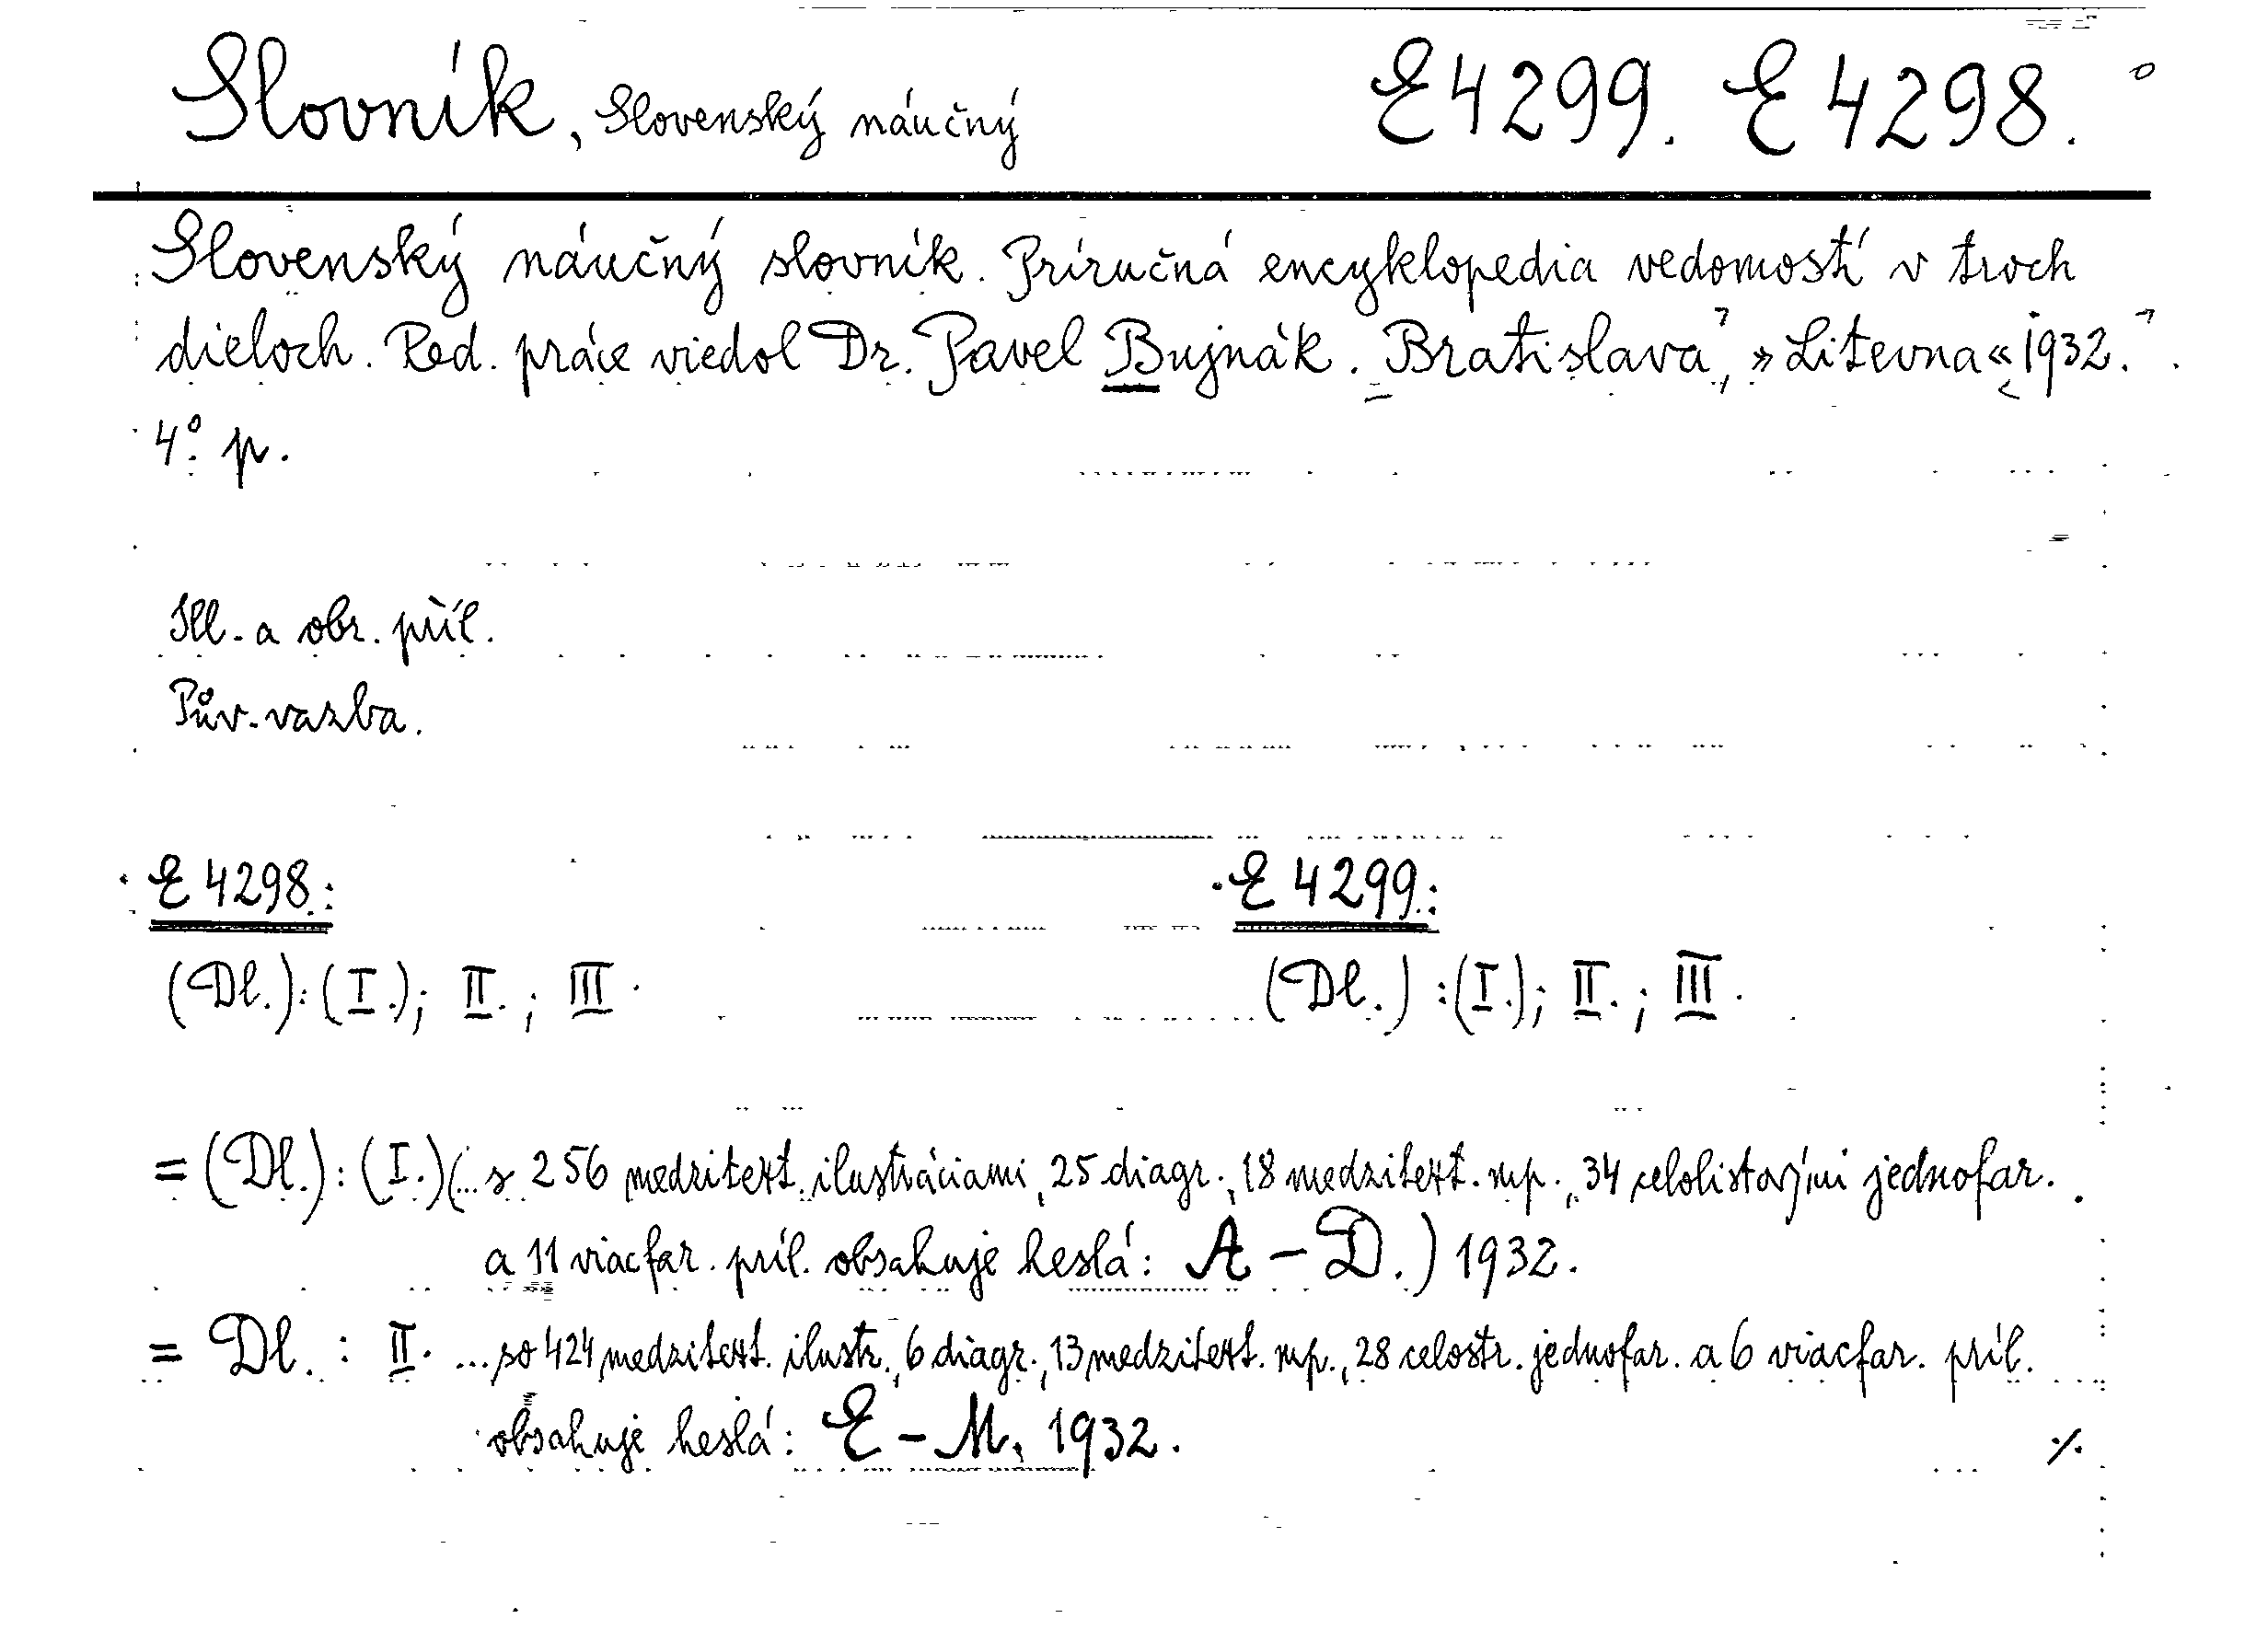 Slovník, Slovenský náučný E 4299. E 4298.
Slovenský náučný slovník. Príručná encyklopedia vedomostí v troch
dieloch. Red. práce viedol Dr. Pavel Bujnák. Bratislava, »Litevna« 1932.
4°. p.
Ill. a obr. příl.
Pův. vazba.
E 4298.: E 4299.:
(Dl.): (I.); II.; III. (Dl.): (I.); II.; III.
= (Dl.): (I.) (... s 256 medzitext. ilustráciami, 25 diagr., 18 medzitext. mp., 34 celolistovými jednofar.
a 11 viacfar. príl. obsahuje heslá: A – D.) 1932.
= Dl. : II. ... so 424 medzitext. ilustr., 6 diagr., 13 medzitext. mp., 28 celostr. jednofar. a 6 viacfar. príl.
obsahuje heslá: E – M. 1932. ·/.